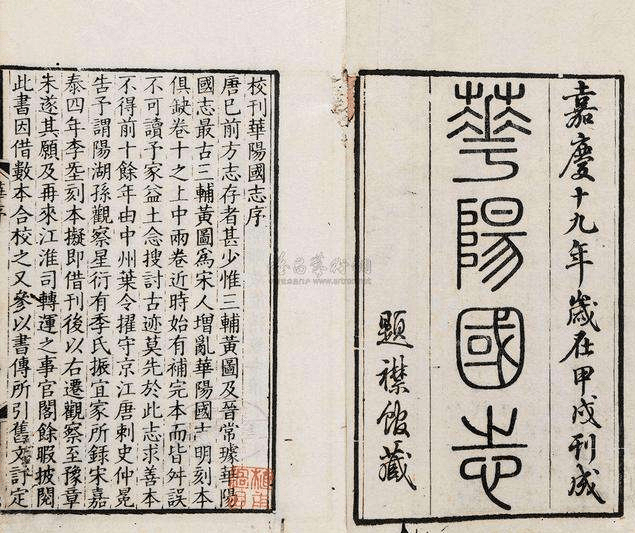 嘉慶十九年歲在甲戌刊成
華陽國志
題襟館藏
校刊華陽國志序
唐巳前方志存者甚少惟三輔黃圖及晉常璩華陽
國志最古三輔黃圖爲宋人增亂華陽國志明刻本
俱缺卷十之上中兩卷近時始有補完本而皆舛誤
不可讀予家益土念搜討古迹莫先於此志求善本
不得前十餘年由中州葉令擢守京江唐刺史仲冕
告予謂陽湖孫觀察星衍有季氏振宜家所錄宋嘉
泰四年李刻本擬即借刊後以右遷觀察至豫章
未遂其願及再來江淮司轉運之事官閣餘暇披閱
此書因借數本合校之又參以書傳所引舊文訂定